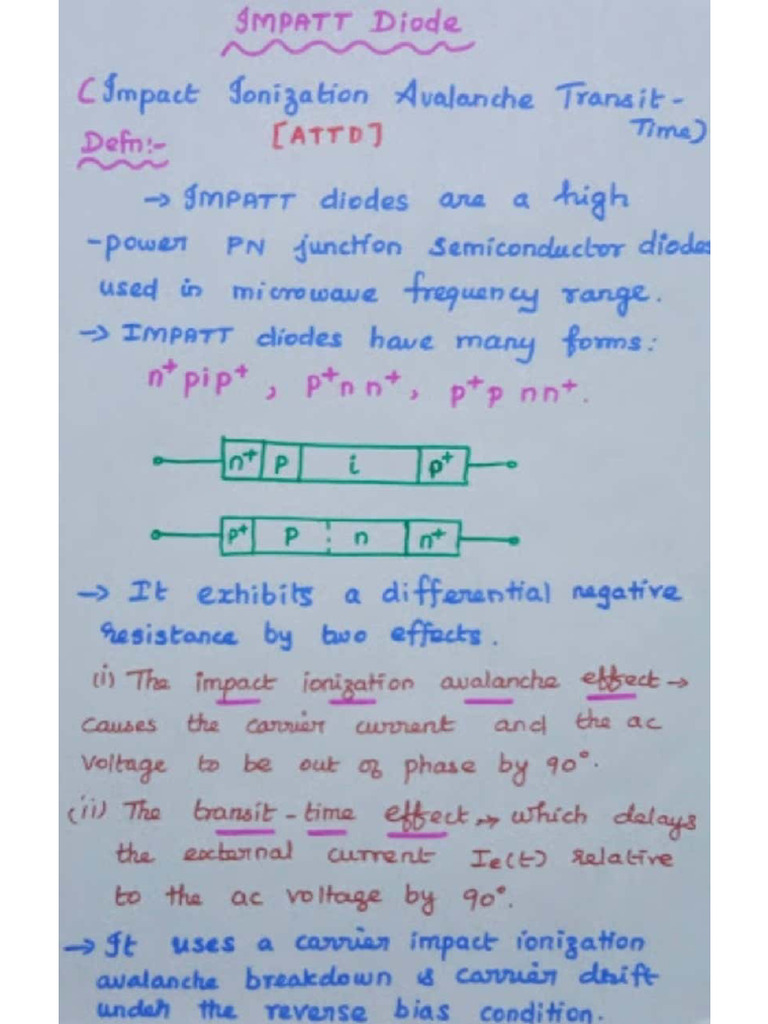 IMPATT Diode
(Impact Ionization Avalanche Transit-
Time)
[ATTD]
Defn:-
→ IMPATT diodes are a high
-power PN junction semiconductor diodes
used in microwave frequency range.
→ IMPATT diodes have many forms:
n⁺pip⁺, p⁺n n⁺, p⁺p nn⁺.
n⁺ p i p⁺
p⁺ p n n⁺
→ It exhibits a differential negative
resistance by two effects.
(i) The impact ionization avalanche effect →
causes the carrier current and the ac
voltage to be out of phase by 90°.
(ii) The transit-time effect → which delays
the external current Ie(t) relative
to the ac voltage by 90°.
→ It uses a carrier impact ionization
avalanche breakdown & carrier drift
under the reverse bias condition.